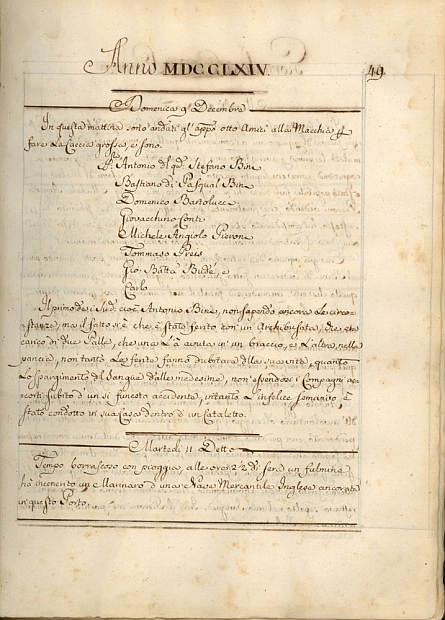 Anno MDCCLXIV.
49
Domenica 9 Decembre
In questa mattina sono andati gl'app.i otto Amici alla Macchia p
fare La Caccia grossa, e sono.
Antonio del q.m Stefano Bine
Bastiano di Pasqual Bine
Domenico Bartolucci
Giovacchino Conti
Michele Angiolo Piovone
Tommaso Preis
Gio. Batta Budè, e
Carlo
Il primo de i Sud.i cioè Antonio Bine, non sapendo ancora Le circo-
stanze, ma il fatto si è che è stato ferito con un Archibusata, che era
carico di due Palle, che una L'à avuta in un braccio, e L'altra nella
pancia, non tanto Le ferite fanno dubitare della sua vita, quanto
Lo spargimento del Sangue dalle medesime, non essendosi i Compagni ac-
corti subito d'un si funesto accidente, intanto L'infelice semivivo, è
stato condotto in sua Casa dentro d'un Cataletto.
Martedi 11 Detto
Tempo borrascoso con pioggia, alle ore 22 di sera un fulmine
hà incenerito un Marinaro d'una Nave Mercantile Inglese ancorata
in questo Porto.